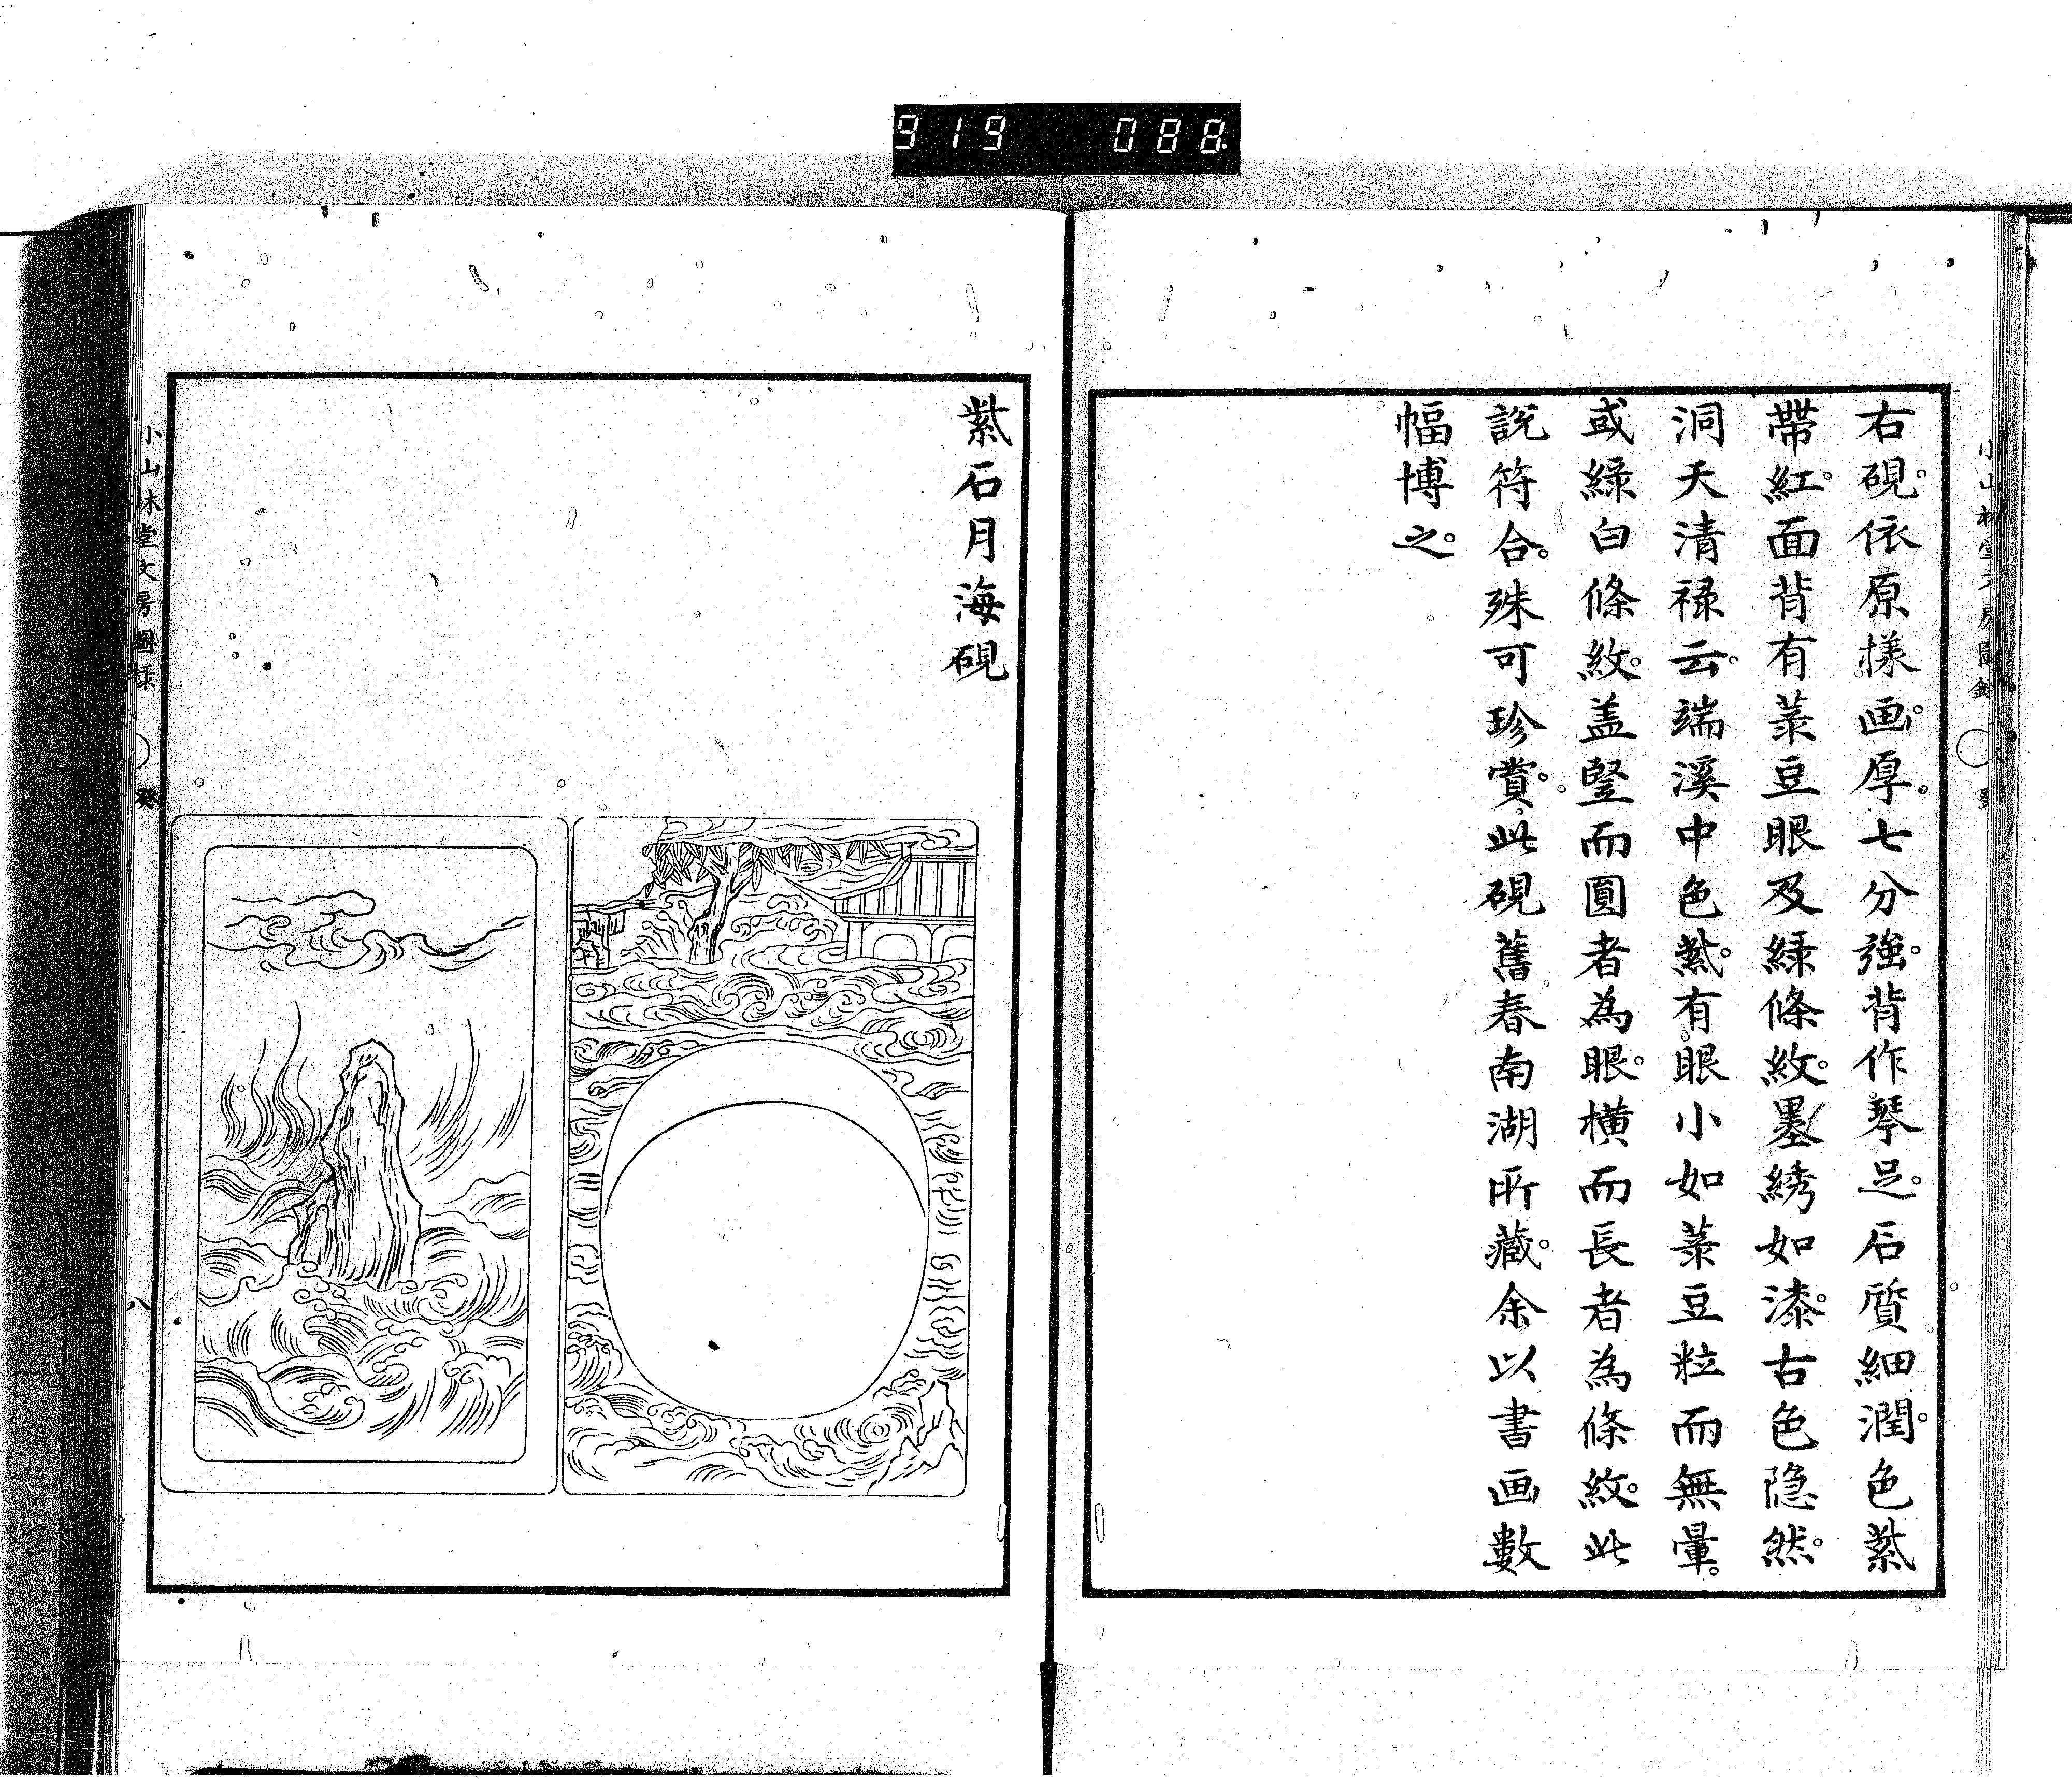 919 088
右硯。依原樣画。厚。七分強。背作琴足。石質細潤。色紫
帶紅。面背有菉豆眼及緑條紋。墨綉如漆。古色隐然。
洞天清禄云。端溪中色紫。有眼小如菉豆粒而無暈。
或緑白條紋。盖竪而圓者為眼。横而長者為條紋。此
説符合。殊可珍賞。此硯舊春南湖所藏。余以書画數
幅博之。
紫石月海硯
小山林堂文房圖録 癸
八